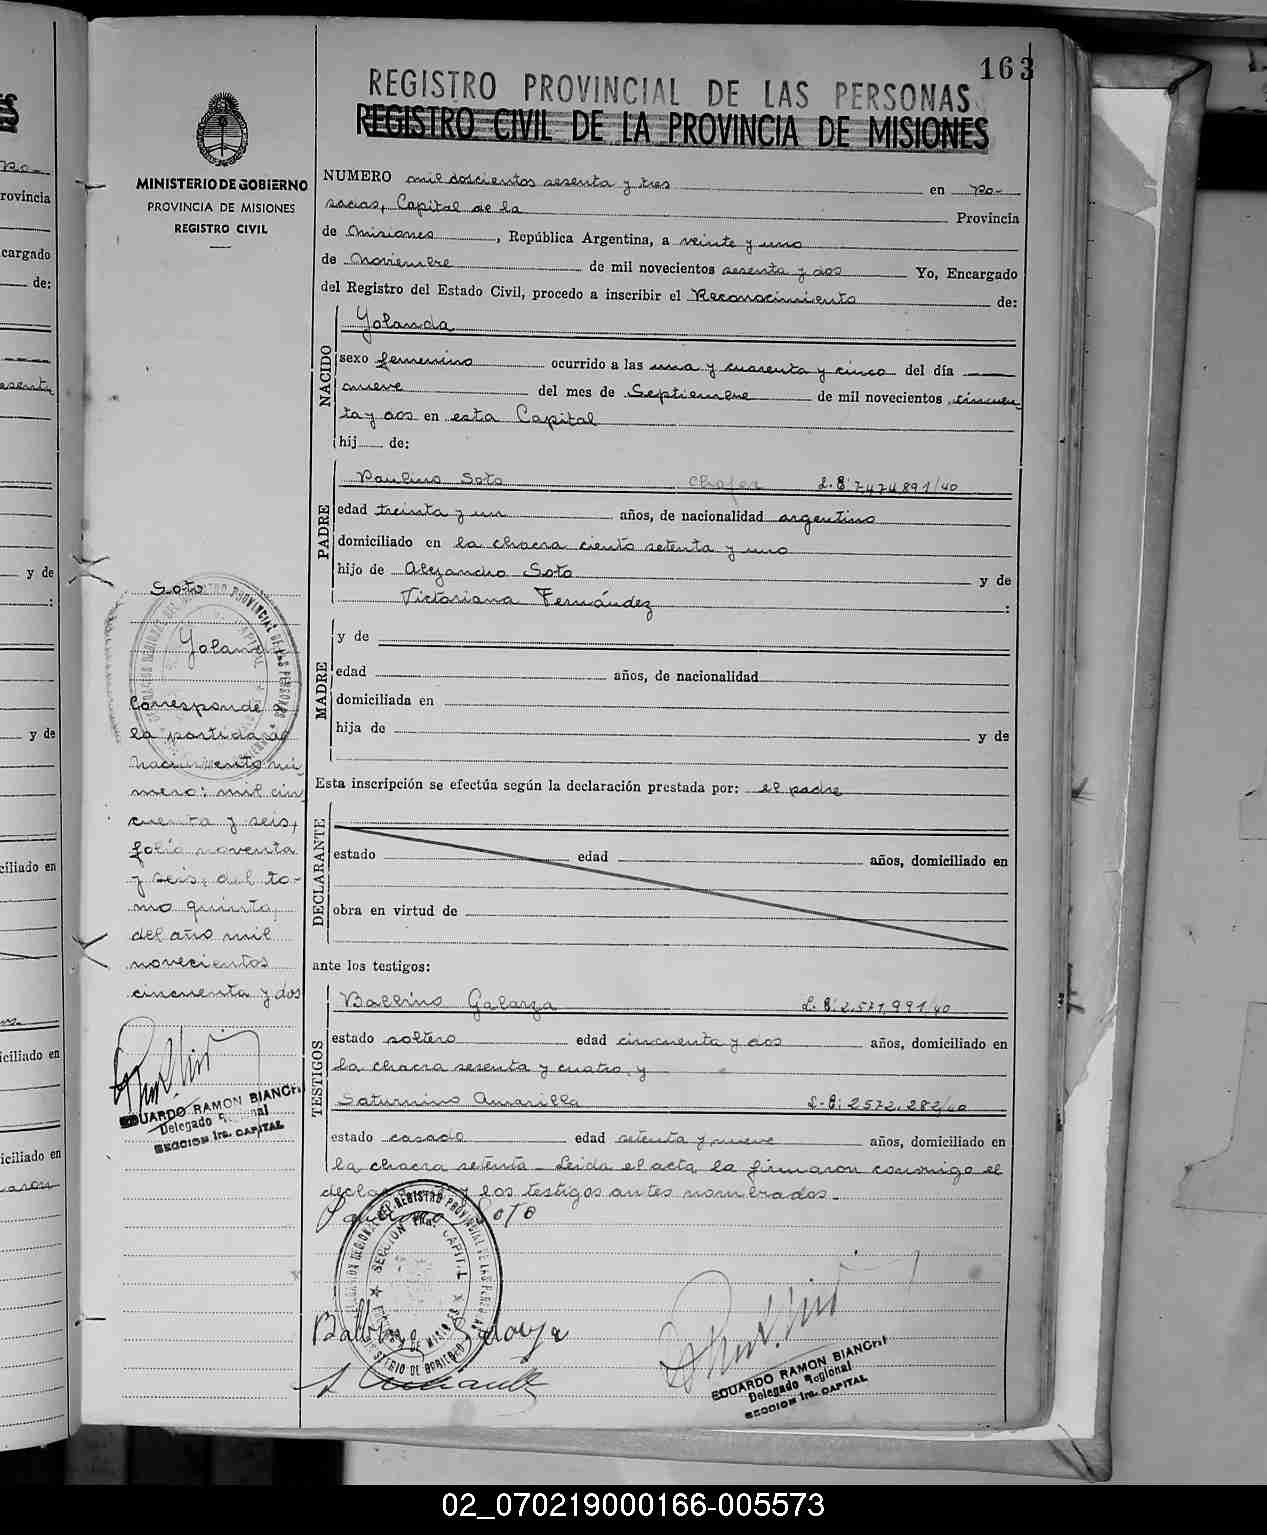 163
REGISTRO PROVINCIAL DE LAS PERSONAS
REGISTRO CIVIL DE LA PROVINCIA DE MISIONES
MINISTERIO DE GOBIERNO
PROVINCIA DE MISIONES
REGISTRO CIVIL
NUMERO mil doscientos sesenta y tres en Po-
sadas, Capital de la Provincia
de Misiones, República Argentina, a veinte y uno
de Noviembre de mil novecientos sesenta y dos Yo, Encargado
del Registro del Estado Civil, procedo a inscribir el Reconocimiento de:
NACIDO
Yolanda
sexo femenino ocurrido a las una y cuarenta y cinco del día
nueve del mes de Septiembre de mil novecientos cincuen-
ta y dos en esta Capital
hij de:
PADRE
Paulino Soto Chofer L.E: 7,474,891/40
edad treinta y un años, de nacionalidad argentino
domiciliado en la chacra ciento setenta y uno
hijo de Alejandro Soto y de
Victoriana Fernández :
MADRE
y de
edad años, de nacionalidad
domiciliada en
hija de y de
Esta inscripción se efectúa según la declaración prestada por: el padre
DECLARANTE
estado edad años, domiciliado en
obra en virtud de
ante los testigos:
TESTIGOS
Balbino Galarza L.E: 2,571,991/40
estado soltero edad cincuenta y dos años, domiciliado en
la chacra sesenta y cuatro, y
Saturnino Amarilla L.E: 2572,282/40
estado casado edad setenta y nueve años, domiciliado en
la chacra setenta - Leida el acta, la firmaron conmigo el
y los testigos antes nombrados.-
Soto
Balbino
EDUARDO RAMON BIANCHI
Delegado Regional
SECCION 1ra. CAPITAL
Soto
Yolanda
Corresponde a
la partida de
nacimiento nú-
mero: mil cin
cuenta y seis,
folio noventa
y seis, del to-
mo quinto,
del año mil
novecientos
cincuenta y dos
EDUARDO RAMON BIANCHI
Delegado Regional
SECCION 1ra. CAPITAL
rovincia
cargado
de:
y de
:
y de
ciliado en
iciliado en
iciliado en
02_070219000166-005573